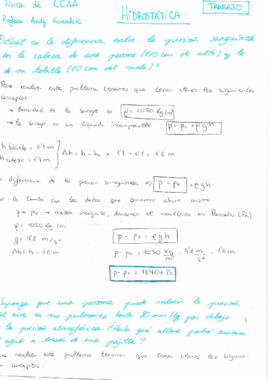 Física de CCAA
HIDROSTÁTICA
TRABAJO
Profesor: Andy Kowalski
¿Cuál es la diferencia entre la presión sanguínea
en la cabeza de una persona (170 cm de alto) y la
de su tobillo (10 cm del suelo)?
Para resolver este problema tenemos que tener claros los siguientes
conceptos:
→ densidad de la sangre es ρ = 1050 Kg/m³
→ la sangre es un líquido incompresible p = p₀ + ρgh
h tobillo = 0'1 m
h cabeza = 1'7 m
Δh = h - h₀ = 1'7 - 0'1 = 1'6 m
a diferencia de la presión sanguínea es p - p₀ = ρgh
tanto con los datos que tenemos ahora mismo
p - p₀ → nuestra incógnita, daremos el resultado en Pascales (Pa)
ρ = 1050 Kg/m³
g = 9'8 m/s²
Δh = h = 1'6 m
p - p₀ = ρgh
p - p₀ = 1050 Kg/m³ · 9'8 m/s² · 1'6 m
p - p₀ = 16464 Pa
Suponga que una persona puede reducir la presión
del aire en sus pulmones hasta 80 mm Hg por debajo
la presión atmosférica ¿Hasta qué altura podrá
agua a través de una pajilla?
resolver este problema tenemos que tener claros los siguien-
conceptos: